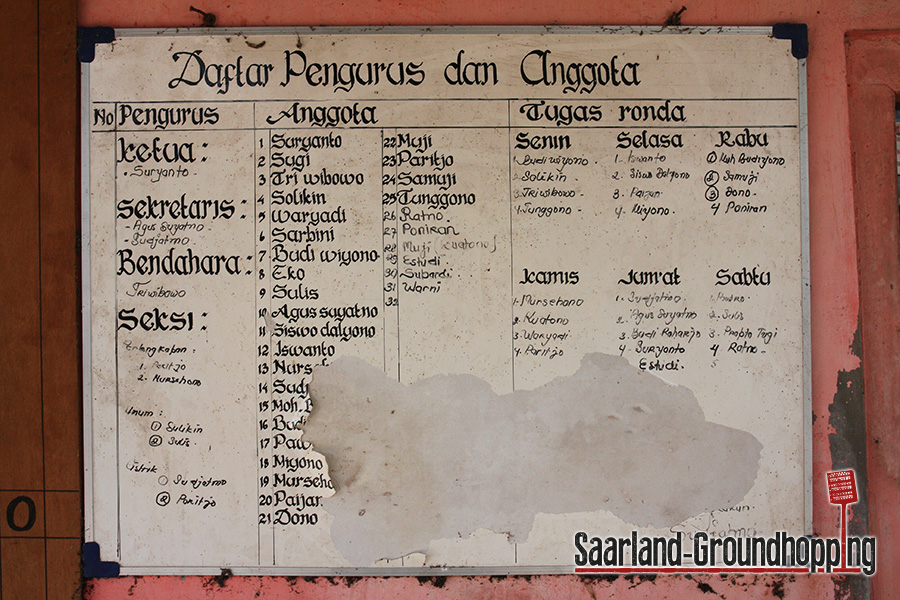 Daftar Pengurus dan Anggota
No Pengurus Anggota Tugas ronda
Ketua:
- Suryanto -
Sekretaris:
- Agus Suyatno -
- Sudjatmo -
Bendahara:
Triwibowo
Seksi:
1. Paritjo
2. Nursehono
Umum :
① Sulikin
② Sulis.
○ Sudjatmo
② Paritjo
1 Suryanto
2 Sugi
3 Tri wibowo
4 Solikin
5 Waryadi
6 Sarbini
7 Budi wiyono
8 Eko
9 Sulis
10 Agus suyatno
11 Siswo dalyono
12 Iswanto
13 Nurse
14 Sudj
15 Moh.
16 Bud
17 Paw
18 Miyono
19 Marseho
20 Paijan
21 Dono
22 Muji
23 Paritjo
24 Samuji
25 Tunggono
26 Ratno.
27 Poniran
28 Muji
29 Estudi.
30 Subardi
31 Warni
32
Senin
1. Budi wiyono.
2. Solikin.
3. Triwibowo -
4. Tunggono -
Selasa
1. Iswanto
2. Siswo Dalyono
3. Paijan
4. Miyono.
Rabu
① Moh Budiyono
② Samuji
③ Dono.
4 Poniran
Kamis
1. Nursehono
2. Kuatono
3. Waryadi
4. Paritjo
Jum'at
1. Sudjatmo.
2. Agus Suyatno
3. Budi Raharjo
4. Suryanto
Estudi.
Sabtu
2. Sulis
4. Ratno -
0
Saarland-Groundhopping